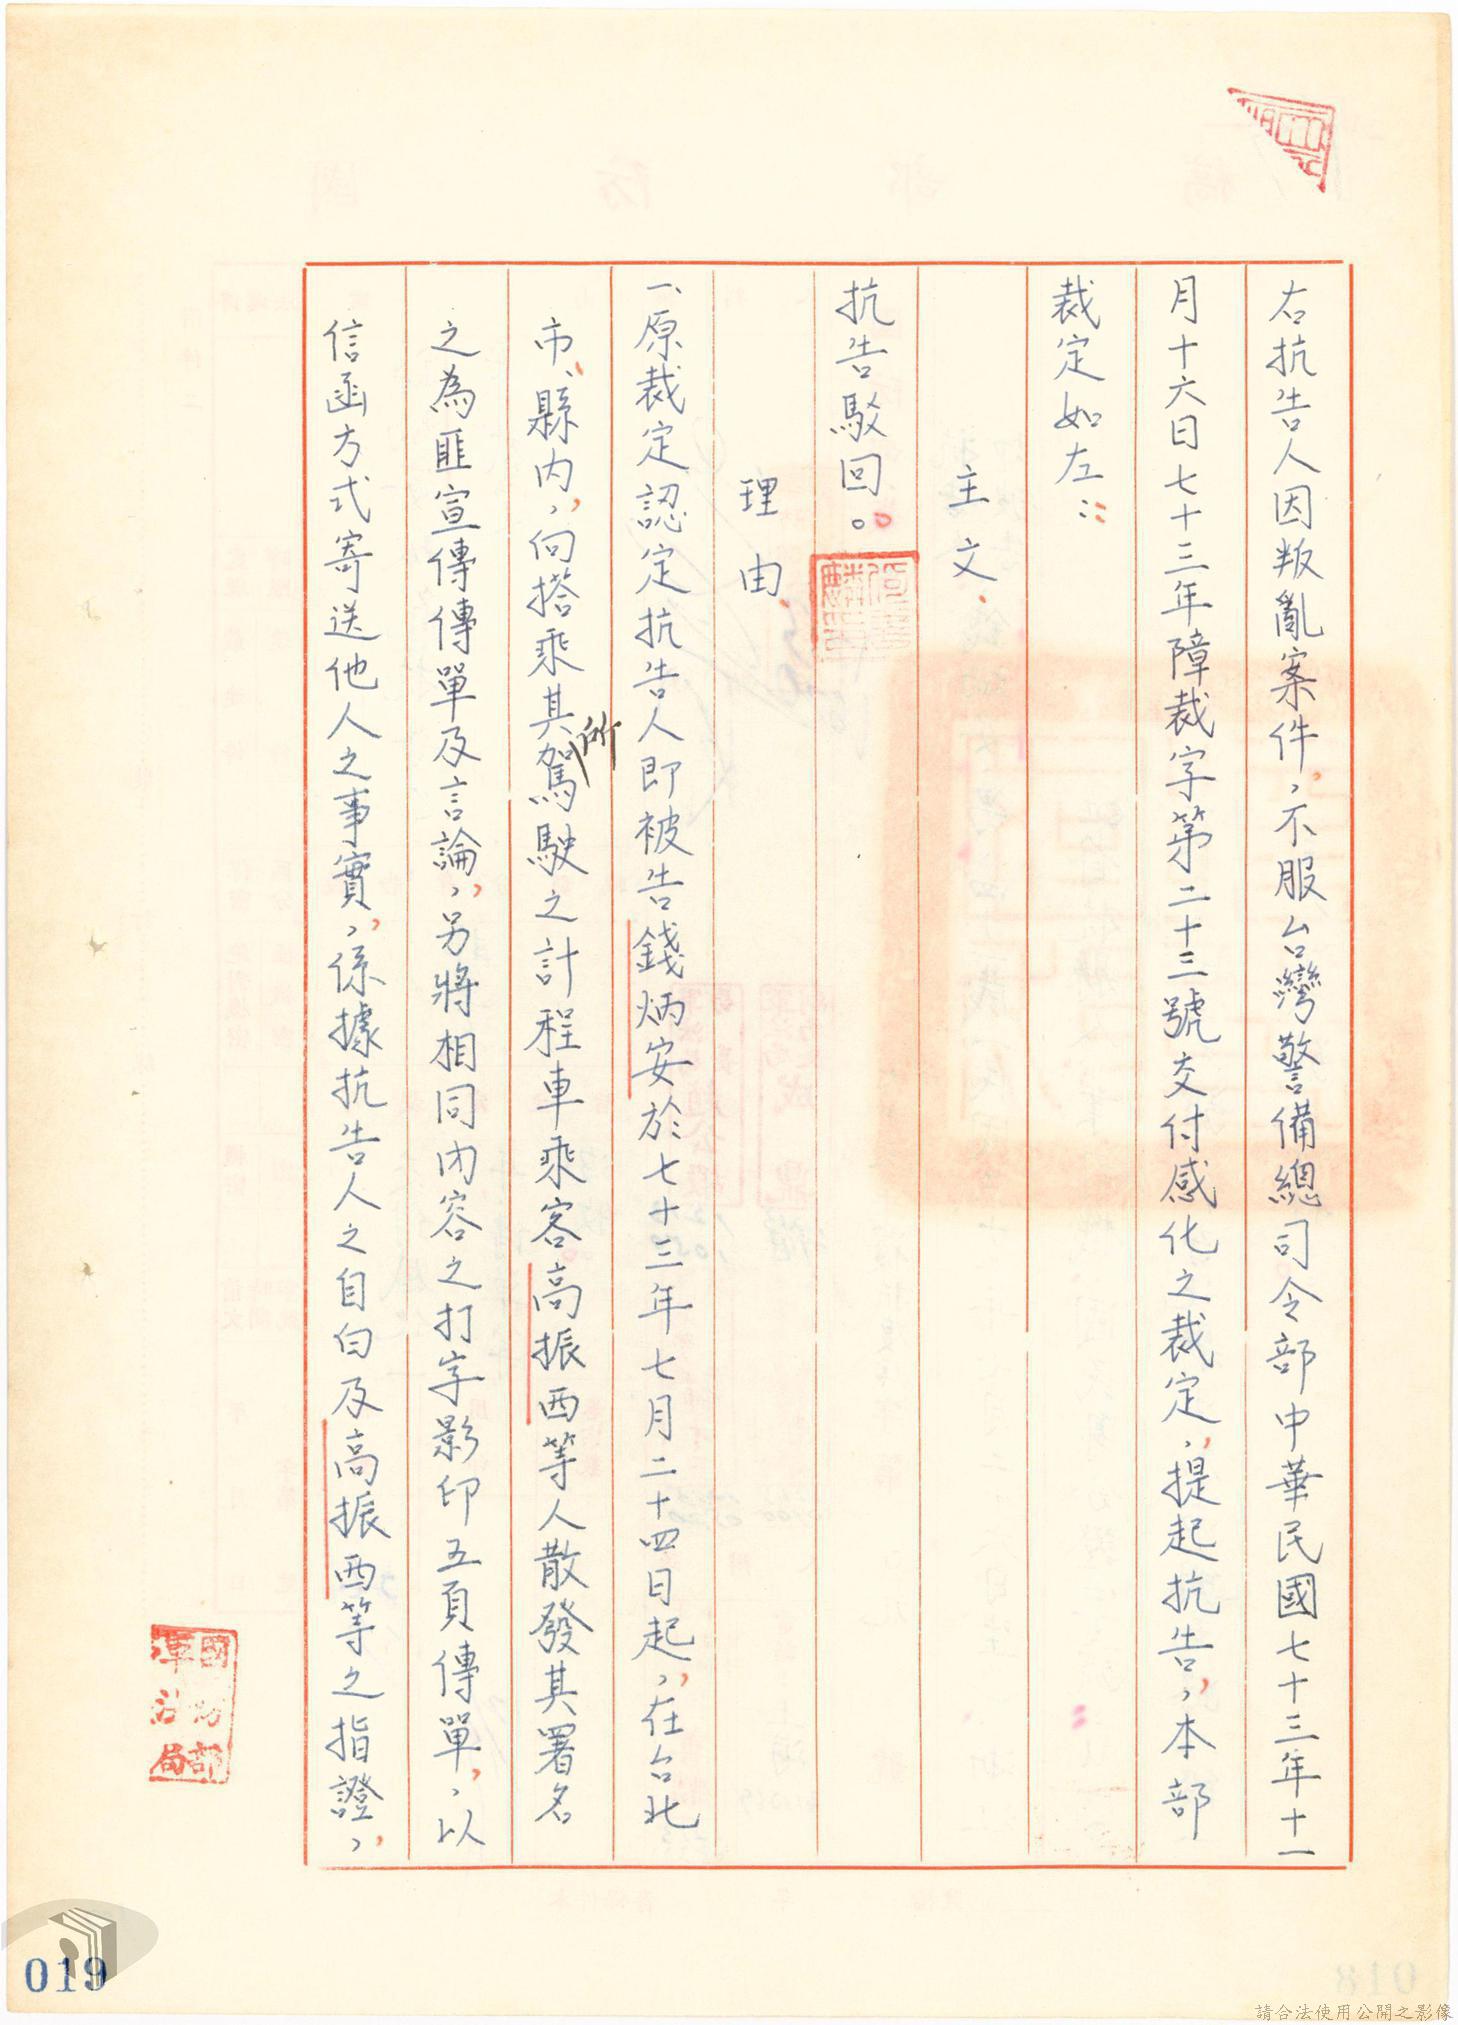 右抗告人因叛亂案件,不服台灣警備總司令部中華民國七十三年十一
月十六日七十三年障裁字第二十三號交付感化之裁定,提起抗告,本部
裁定如左:
主文
抗告駁回。
理由
一、原裁定認定抗告人即被告錢炳安於七十三年七月二十四日起,在台北
市、縣內,向搭乘其所駕駛之計程車乘客高振西等人散發其署名
之為匪宣傳傳單及言論,另將相同內容之打字影印五頁傳單,以
信函方式寄送他人之事實,係據抗告人之自白及高振西等之指證,
國防部
軍法局
019
請合法使用公開之影像